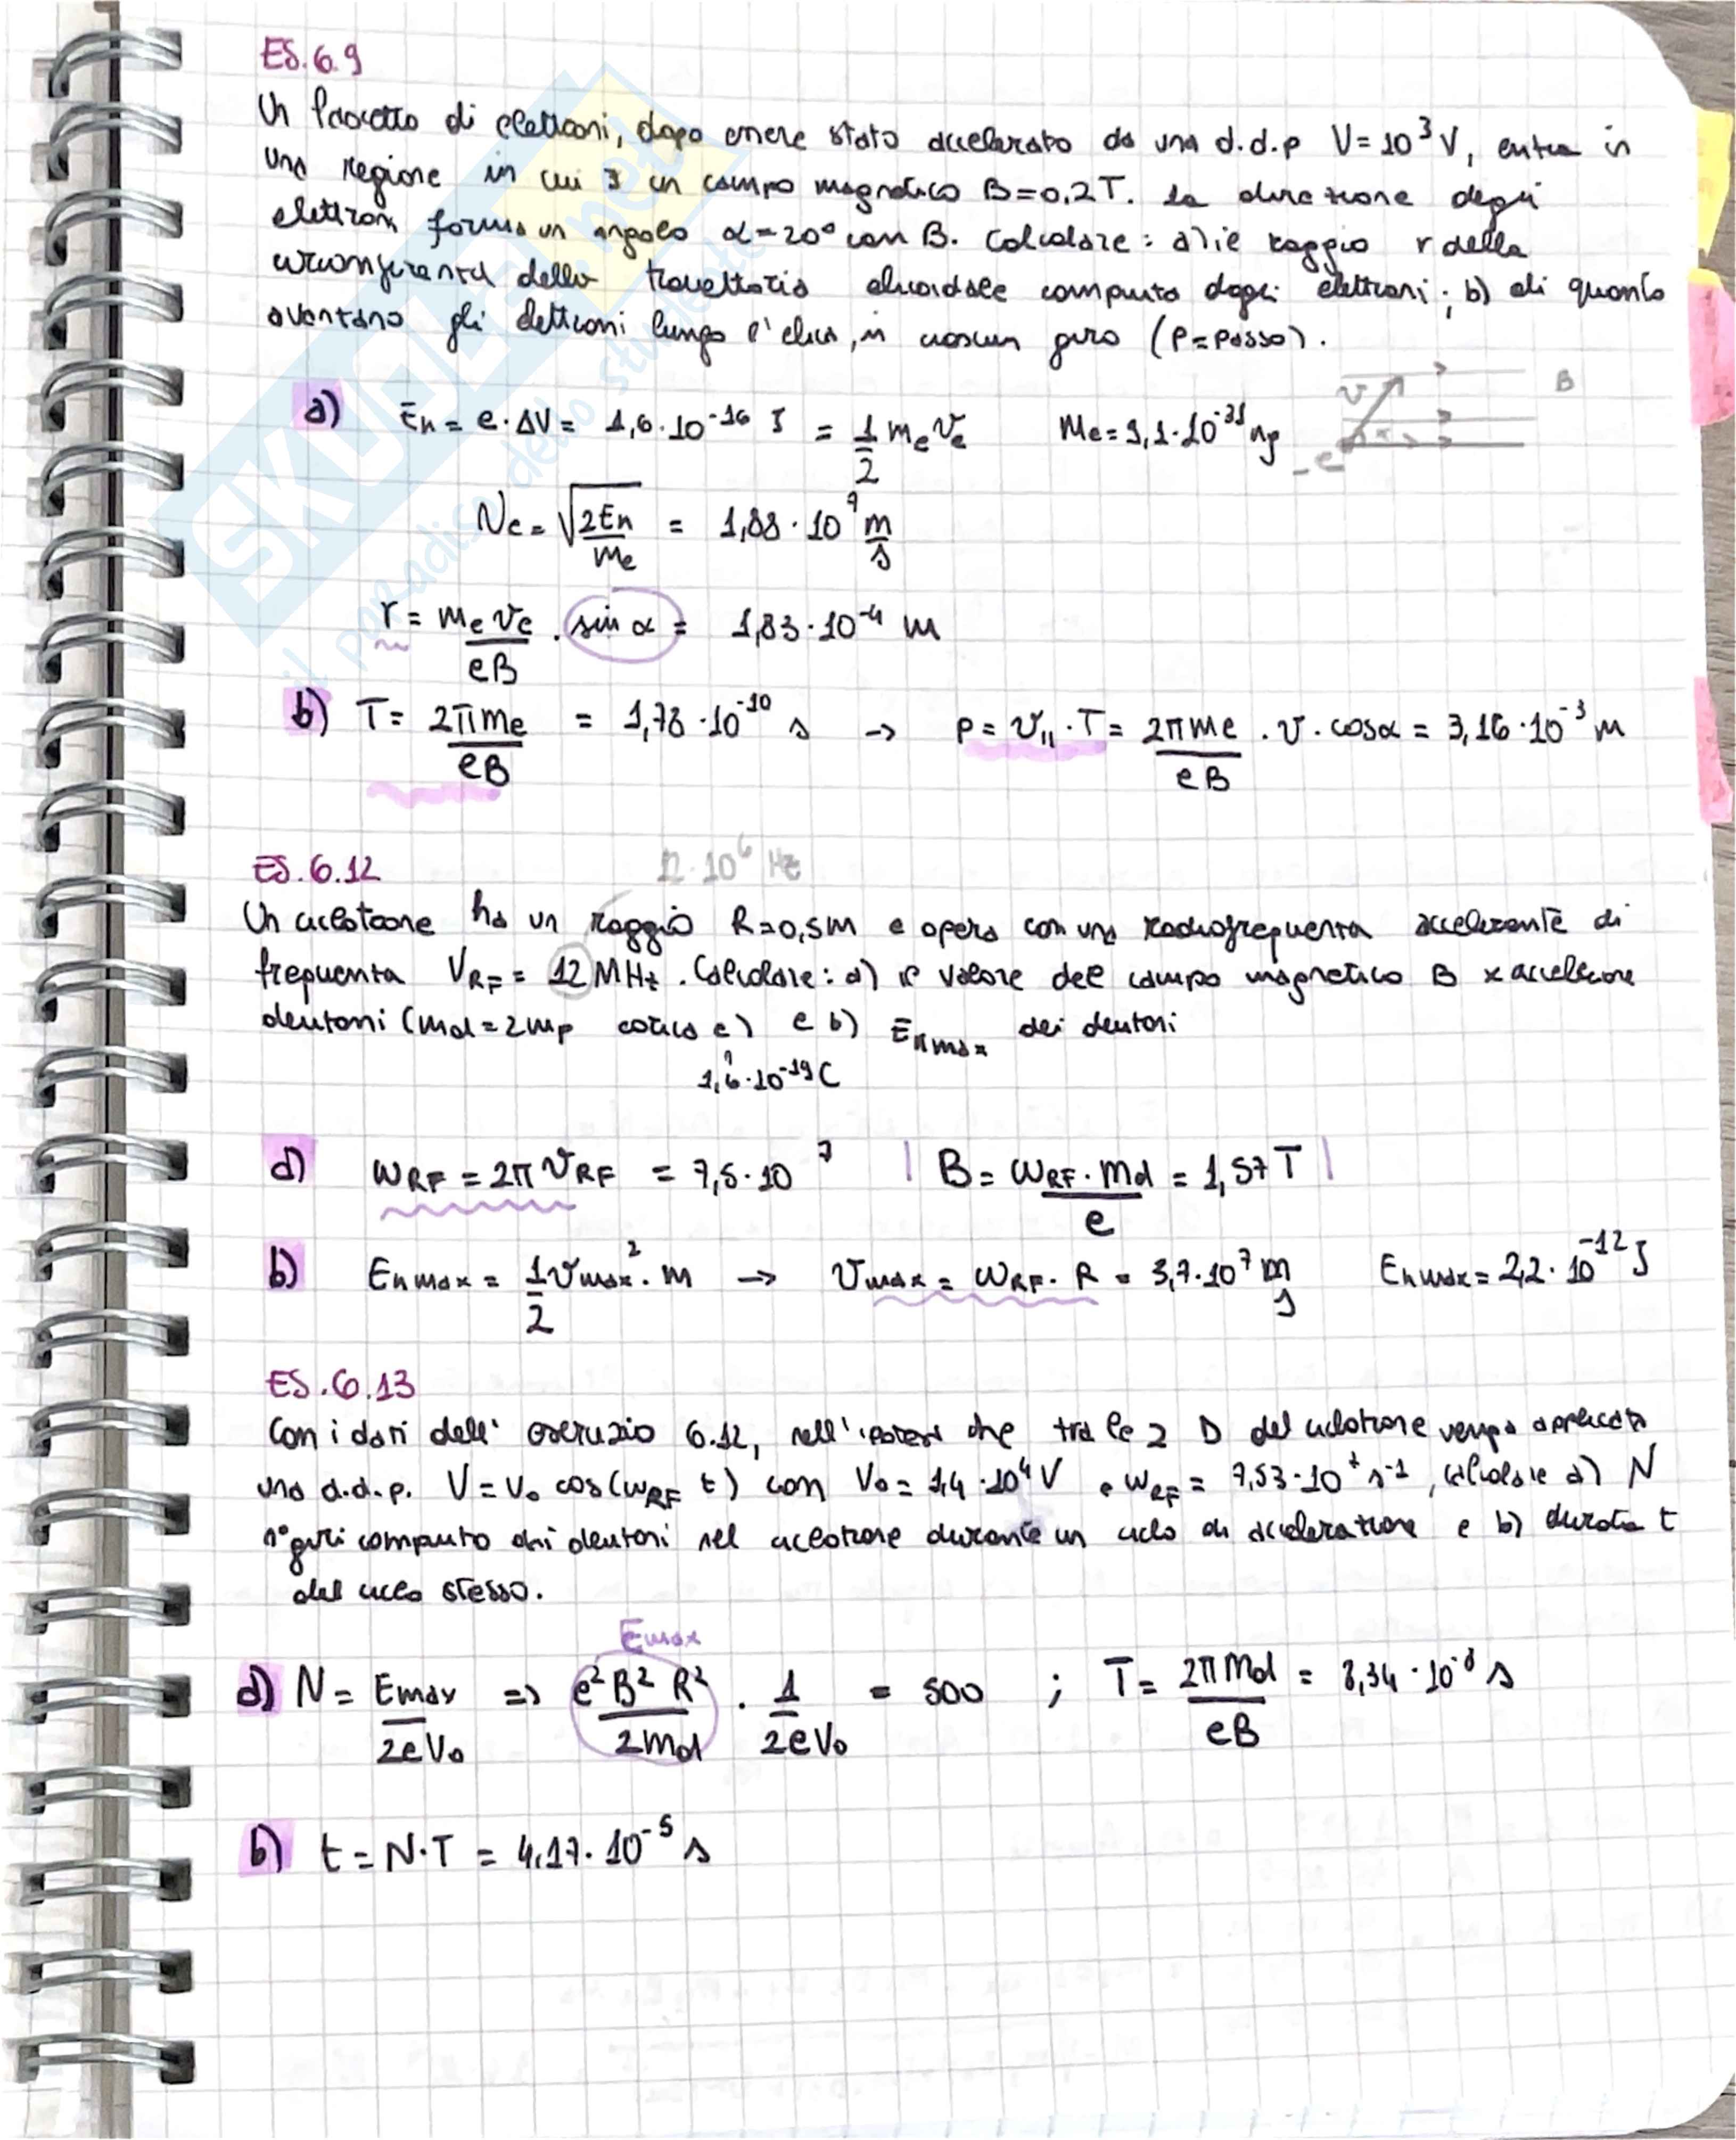 ES.6.9
Un fascetto di elettroni, dopo essere stato accelerato da una d.d.p V=10³V, entra in
una regione in cui ∃ un campo magnetico B=0,2T. La direzione degli
elettroni forma un angolo α=20° con B. Calcolare: a) il raggio r della
circonferenza della traiettoria elicoidale compiuta dagli elettroni; b) di quanto
avanzano gli elettroni lungo l'elica, in ciascun giro (p=passo).
a) Ek = e·ΔV = 1,6·10⁻¹⁶ J = 1/2 me ve me=9,1·10⁻³¹ kg
B
v
α
-e
ve = √(2Ek/me) = 1,88·10⁷ m/s
r = me ve/eB · sin α = 1,83·10⁻⁴ m
b) T = 2πme/eB = 1,78·10⁻¹⁰ s → p = v∥·T = 2πme/eB · v · cosα = 3,16·10⁻³ m
12·10⁶ Hz
ES.6.12
Un ciclotrone ha un raggio R=0,5m e opera con una radiofrequenza accelerante di
frequenza νRF = 12 MHz. Calcolare: a) il valore del campo magnetico B x accelerare
deutoni (md=2mp carica e) e b) Ekmax dei deutoni
1,6·10⁻¹⁹C
a) ωRF = 2π νRF = 7,5·10⁷ | B = ωRF·md/e = 1,57T |
b) Ekmax = 1/2 vmax²·m → vmax = ωRF·R = 3,7·10⁷ m/s Ekmax = 2,2·10⁻¹² J
ES.6.13
Con i dati dell' esercizio 6.12, nell'ipotesi che tra le 2 D del ciclotrone venga applicata
una d.d.p. V=V₀ cos(ωRF t) con V₀=1,4·10⁴V e ωRF = 7,53·10⁷ s⁻¹, calcolare a) N
n° giri compiuto dai deutoni nel ciclotrone durante un ciclo di accelerazione e b) durata t
del ciclo stesso.
Emax
a) N = Emax/2eV₀ => e²B²R²/2md · 1/2eV₀ = 500 ; T = 2πmd/eB = 8,34·10⁻⁸ s
b) t = N·T = 4,17·10⁻⁵ s
SKUOLA.net
il paradiso dello studente